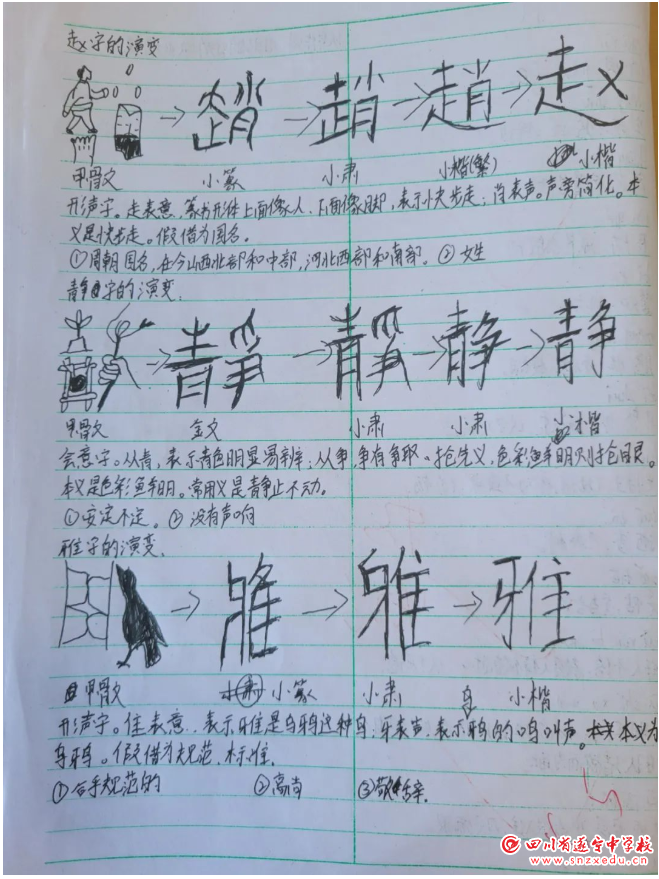 赵字的演变
趙 趙 趙 赵
甲骨文 小篆 小肃 小楷(繁) 小楷
形声字。走表意,篆书形体上面像人,下面像脚,表示快步走;肖表声。声旁简化。本
义是快步走。假借为国名。
①周朝国名,在今山西北部和中部,河北西部和南部。②女生
静字的演变.
靜 靜 静 静
甲骨文 金文 小肃 小肃 小楷
会意字。从青,表示青色明显易辨;从争,争有争取、抢先义,色彩鱼羊明则抢目艮。
本义是色彩鱼羊明。常用义是青静止不动。
①安定不定。②没有声响
雅字的演变.
雅 雅 雅
甲骨文 小篆 小肃 小楷
形声字。隹表意,表示隹是乌鸦这种鸟;牙表声,表示鸦的鸣叫声。本义为
乌鸦。假借为规范,标准.
①合乎规范的 ②高尚 ③敬辞.
四川省遂宁中学校
www.snzxedu.cn